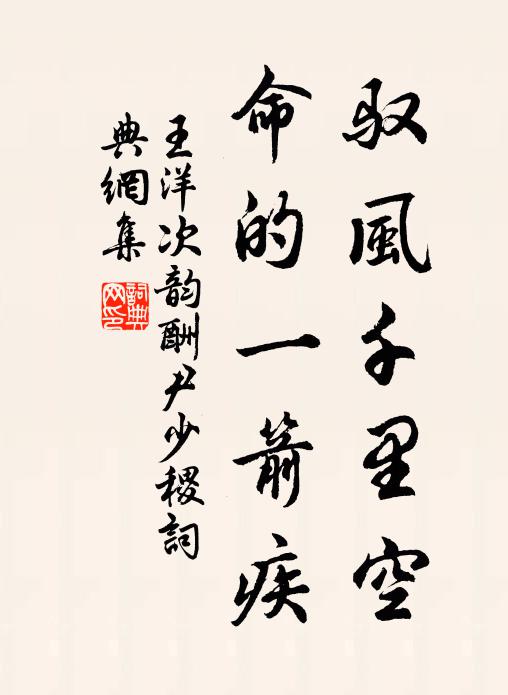 驭風千里空
命的一箭疾
王洋次韵酬尹少稷詞
典網集
詞典网印